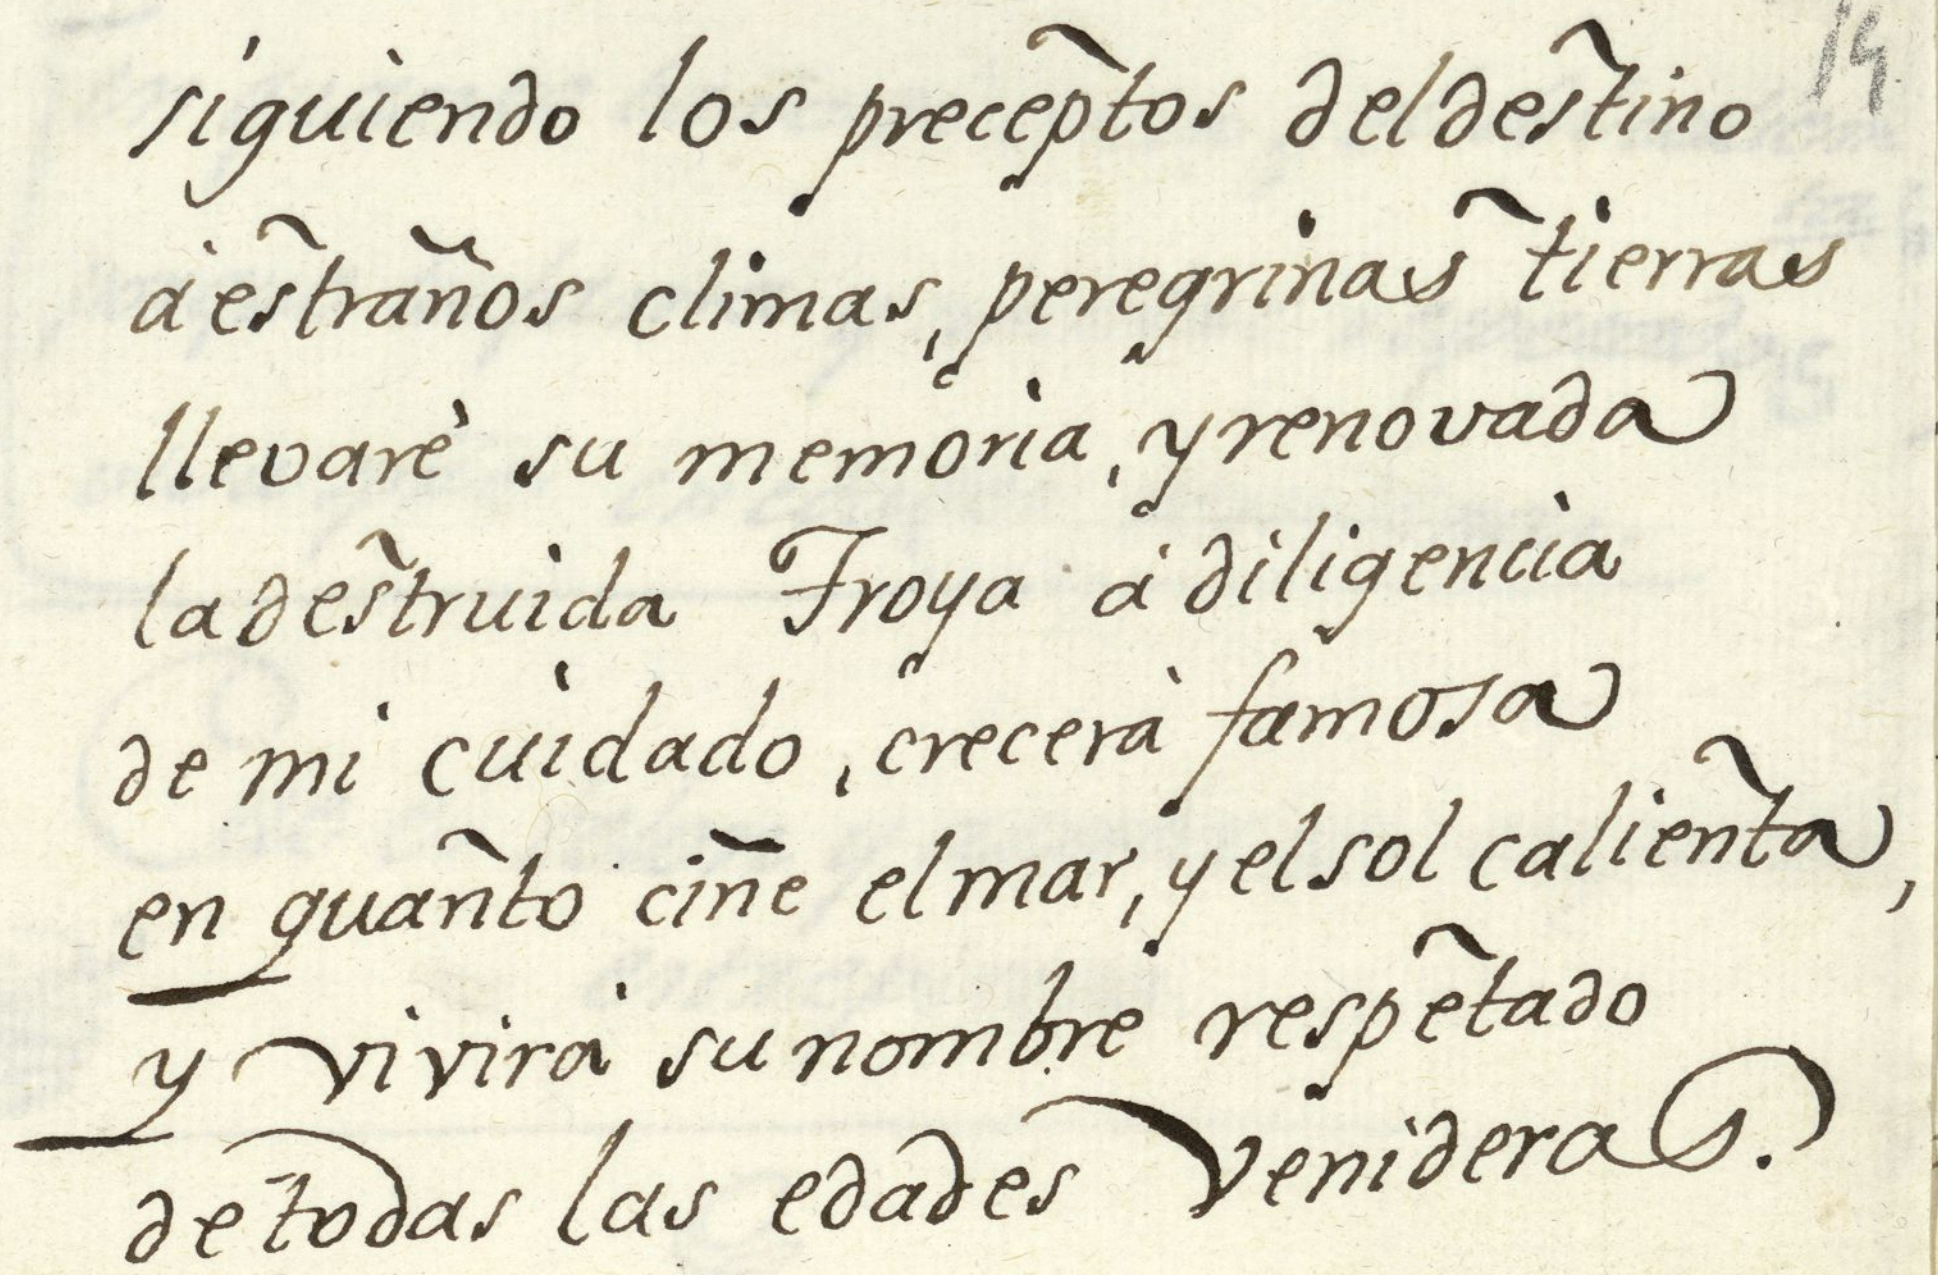 14
siguiendo los preceptos del destino
à estraños climas, peregrinas tierras
llevarè su memoria, y renovada
la destruida Troya à diligencia
de mi cuidado, crecerà famosa
en quanto ciñe el mar, y el sol calienta,
y vivirà su nombre respetado
de todas las edades venideras.